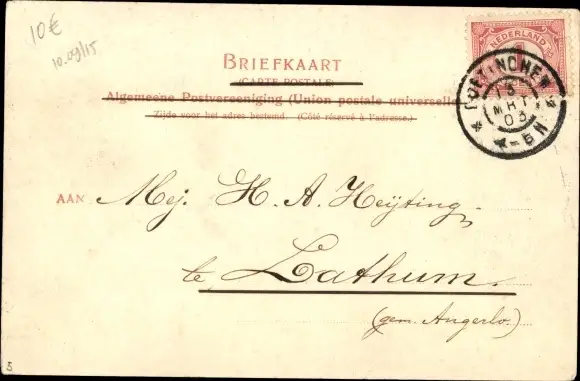 10€
10.09/15
BRIEFKAART
(CARTE POSTALE)
Algemeene Postvereeniging (Union postale universelle)
Zijde voor het adres bestemd. (Côté réservé à l'adresse.)
NEDERLAND
DOETINCHEM
13
MRT
03
4-5N
AAN Mej. H. A. Heijting
te Lathum.
(gem. Angerlo.)
5